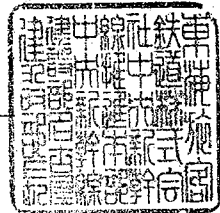 東海旅客
鉄道株式会
社中央新幹
線推進本部
中央新幹線
建設部名古屋
建設部